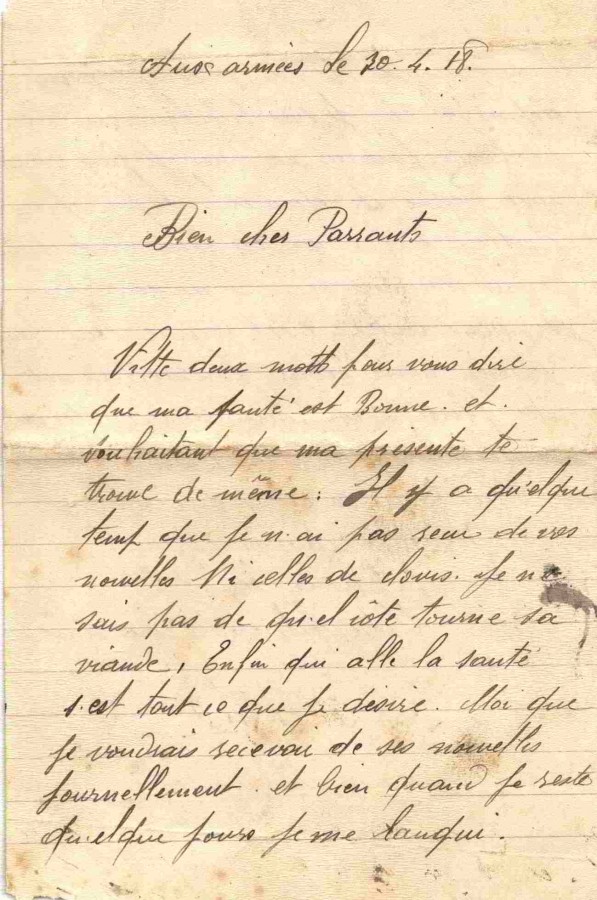 Aux armées le 30. 4. 18.
Bien cher Parrants
Vitte deux mott pour vous dire
que ma santé est Bonne. et.
souhaitant que ma présente te
trouve de même : Il y a qu'elque
temp que je n.ai pas reçu de vos
nouvelles Ni celles de clovis. je ne
sais pas de qu.el côte tourne sa
viande, Enfin qui alle la santé
s.est tout ce que je désire. Moi que
je voudrais recevoir de ses nouvelles
journellement. et bien quand je reste
qu.elque jours je me langui.